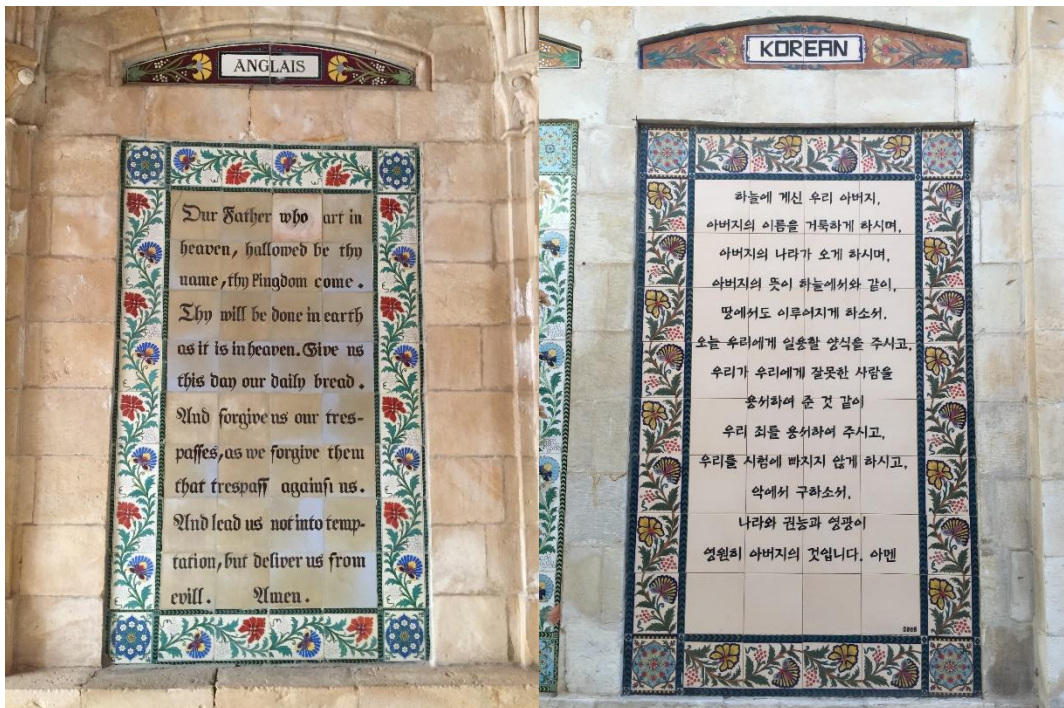 ANGLAIS
Our Father who art in
heaven, hallowed be thy
name, thy Pingdom come.
Thy will be done in earth
as it is in heaven. Give us
this day our daily bread.
And forgive us onr tres-
passes, as we forgive them
that trespass against us.
And lead us not into temp-
tation, but deliver us from
evill. Amen.
KOREAN
하늘에 계신 우리 아버지,
아버지의 이름을 거룩하게 하시며,
아버지의 나라가 오게 하시며,
아버지의 뜻이 하늘에서와 같이,
땅에서도 이루어지게 하소서,
오늘 우리에게 일용할 양식을 주시고,
우리가 우리에게 잘못한 사람을
용서하여 준 것 같이
우리 죄를 용서하여 주시고,
우리를 시험에 빠지지 않게 하시고,
악에서 구하소서,
나라와 권능과 영광이
영원히 아버지의 것입니다. 아멘
2008